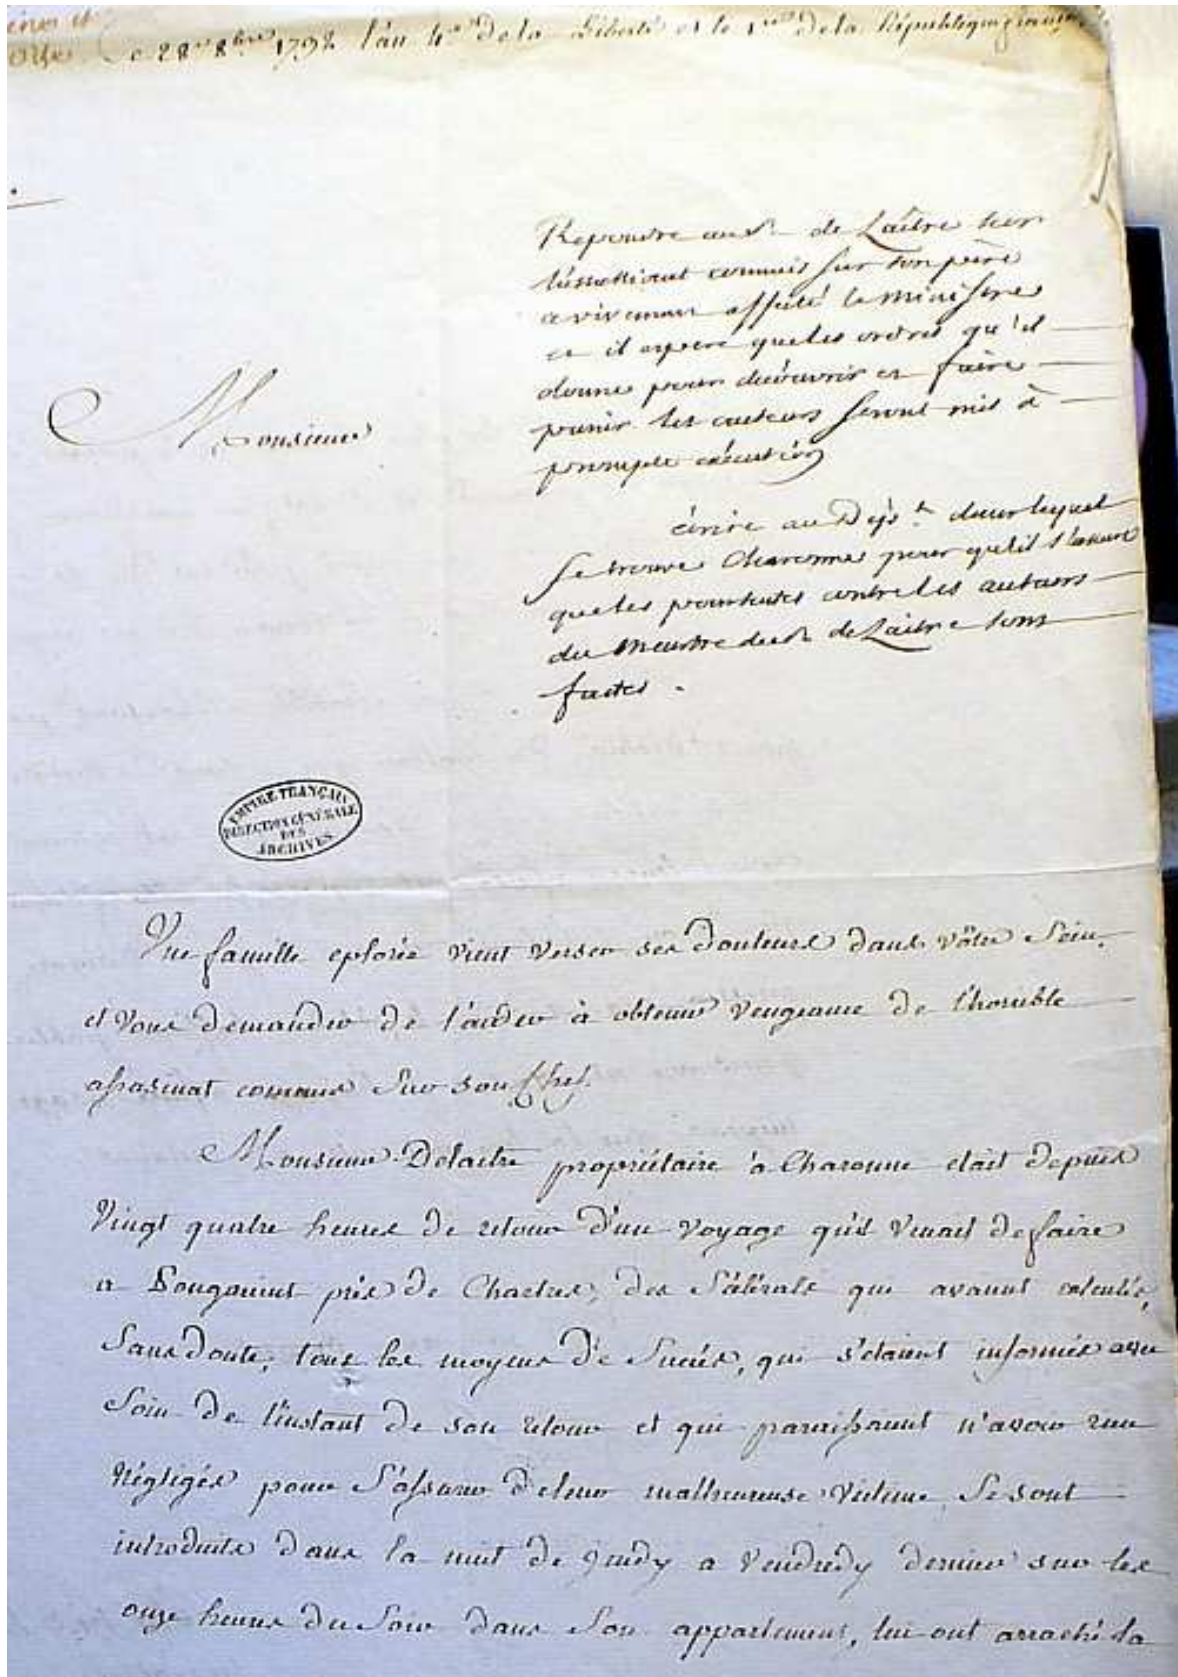 ce 28 8bre 1792 l'an 4e de la Liberté et le 1er de la République française
Repondre au Sr de Laitre
commis sur son père
a vivement affecté le Ministre
et il espere que les ordres qu'il
donne pour découvrir et faire
punir les auteurs seront mis à
prompte exécution
écrire au Dépt dans lequel
se trouve Charonne pour qu'il s'assure
que les poursuites contre les auteurs
du Meurtre du Sr de Laitre sont
faites.
Monsieur
EMPIRE FRANÇAIS
DIRECTION GÉNÉRALE
DES
ARCHIVES
Une famille eplorée vient verser ses douleurs dans vôtre Sein,
et vous demander de l'aider à obtenir vengeance de l'horrible
assasinat commis sur son Chef.
Monsieur Delaitre propriétaire à Charonne etait depuis
Vingt quatre heures de retour d'un voyage qu'il venait de faire
a près de Chartres, des Scélérats qui avaient calculés,
Sans doute, tous les moyens de Succès, qui s'étaient informés avec
Soin de l'instant de son retour et qui paraissaient n'avoir rien
Négligés pour s'assurer de leur malheureuse victime, se sont
introduits dans la nuit de jeudy a Vendredy dernier sur les
onze heures du Soir dans son appartement, lui ont arraché la